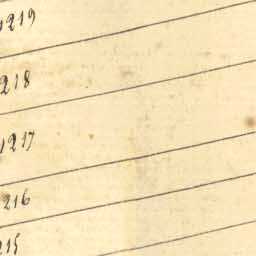 1219
218
1217
216
215